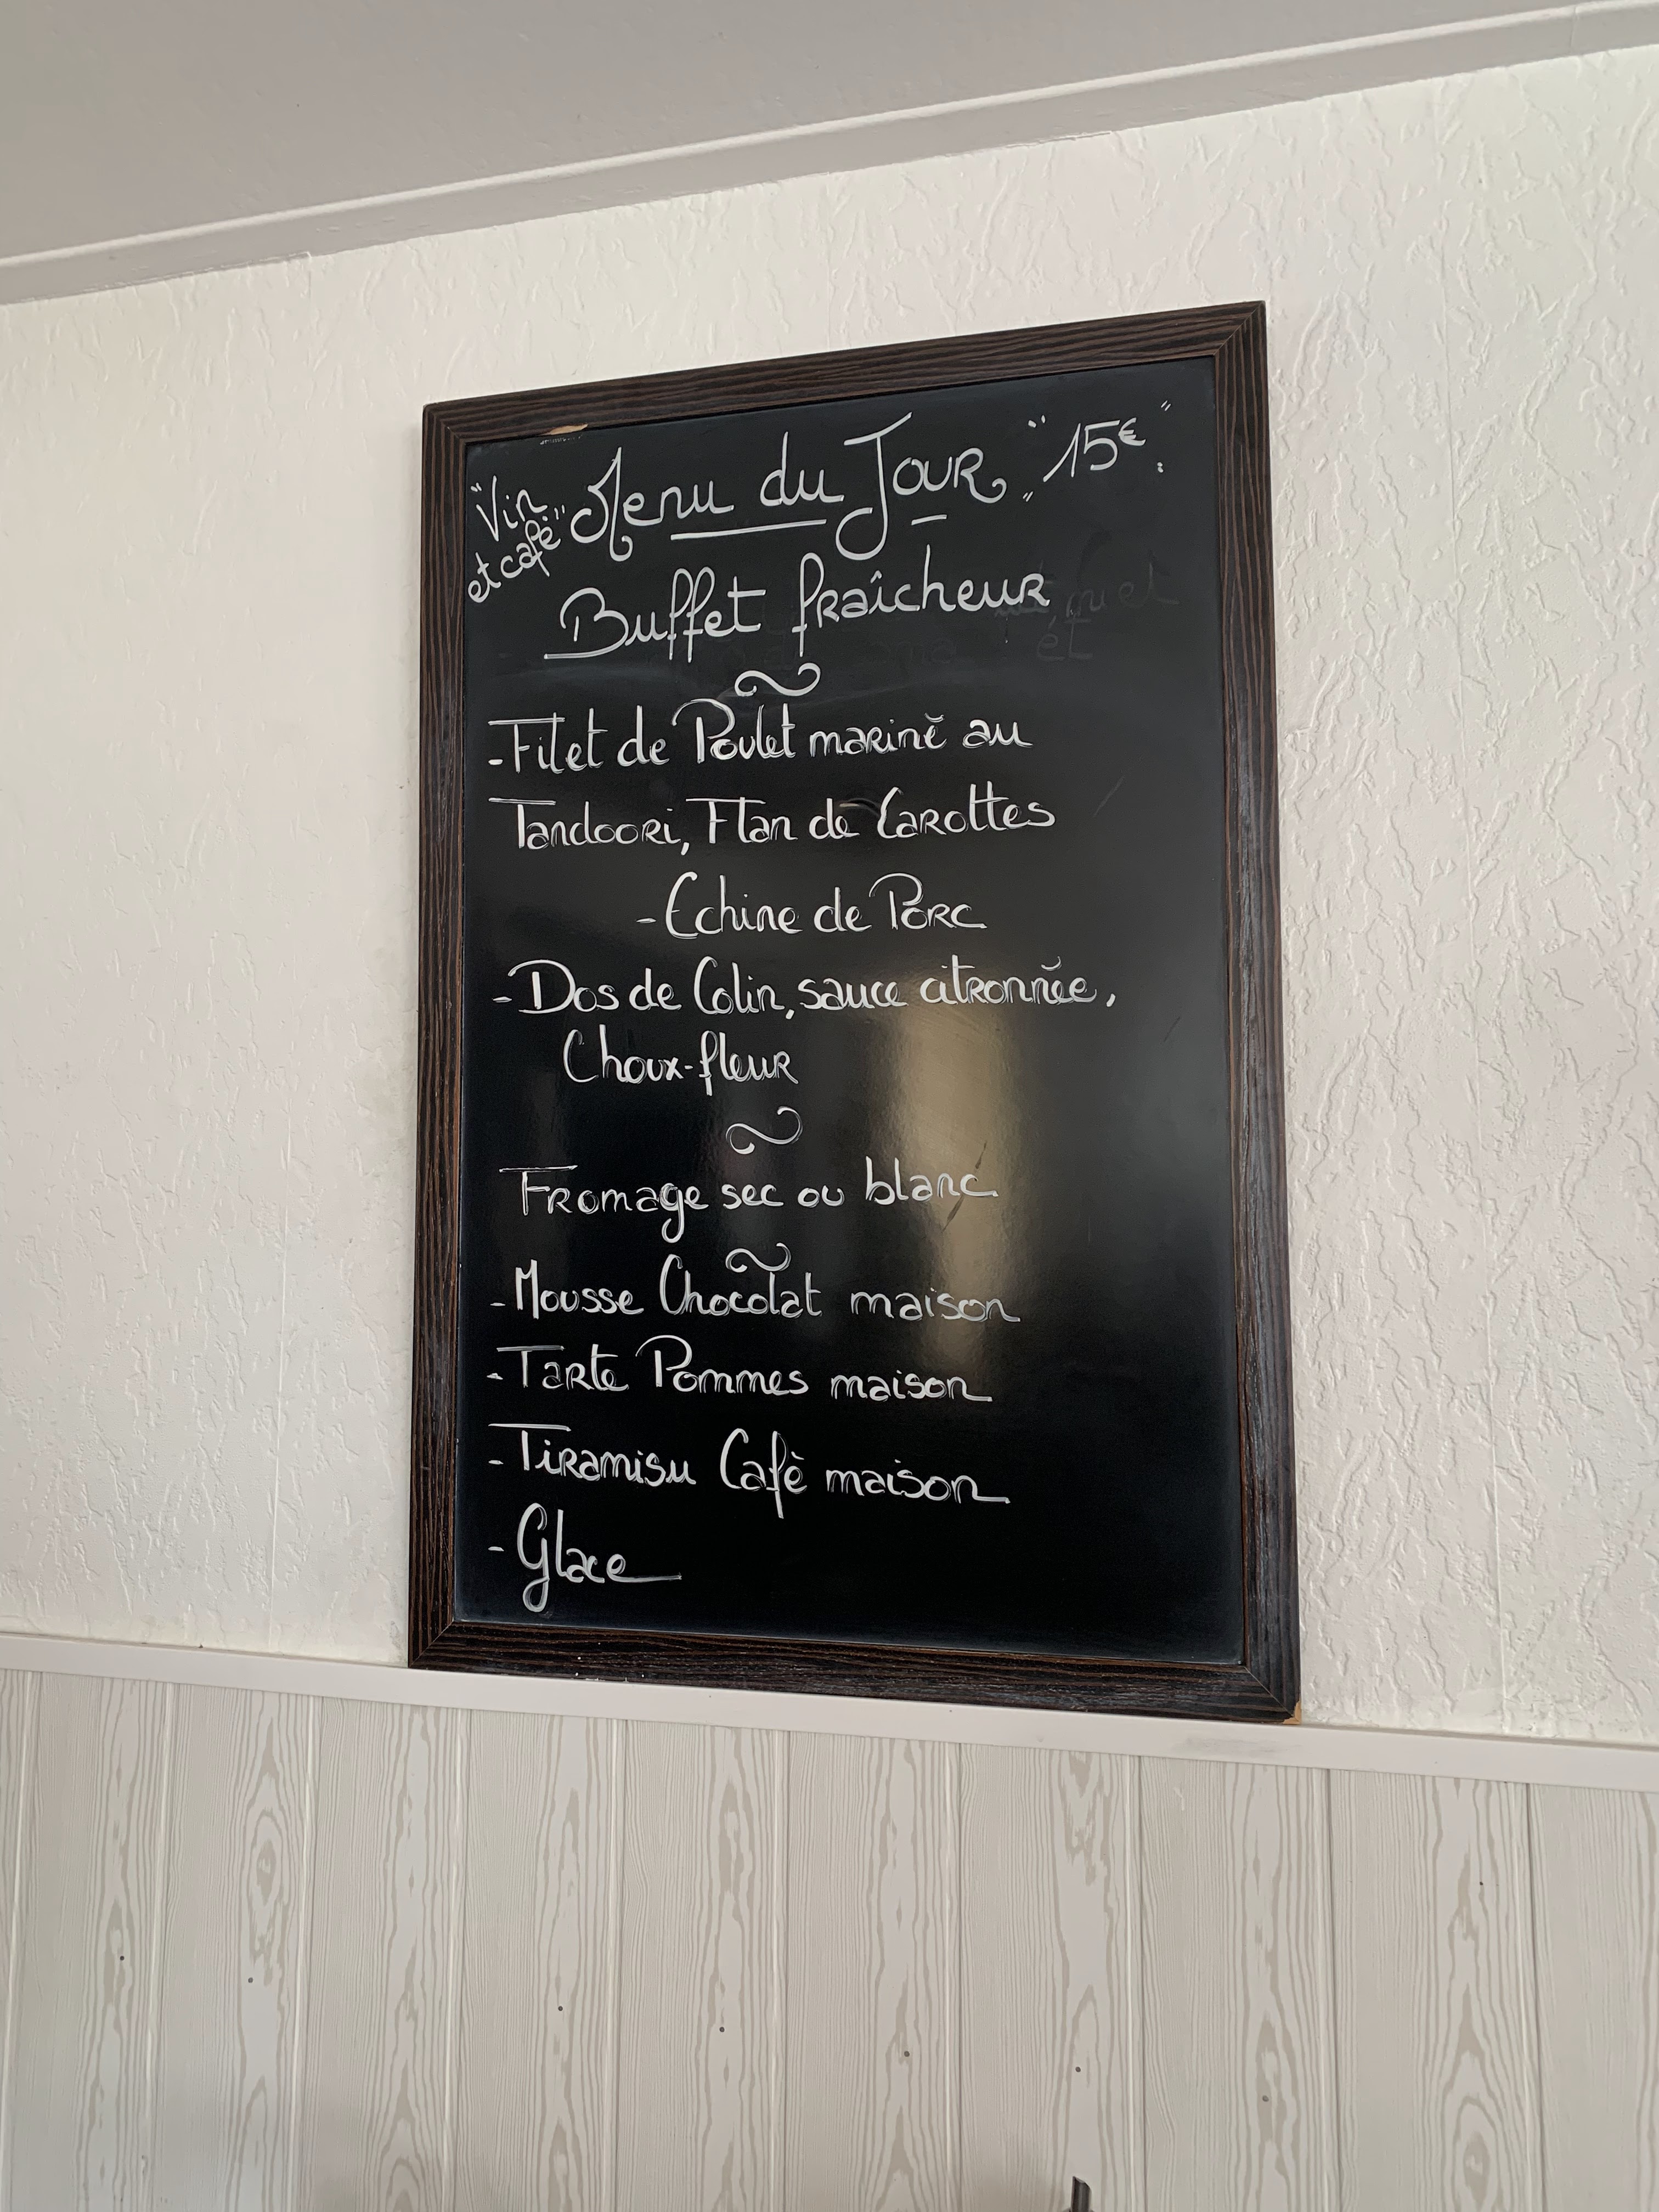 "Vin
et café"
Menu du Jour "15€"
Buffet fraîcheur
- Filet de Poulet mariné au
Tandoori, Flan de Carottes
- Echine de Porc
- Dos de Colin, sauce citronnée,
Choux-fleur
Fromage sec ou blanc
- Mousse Chocolat maison
- Tarte Pommes maison
- Tiramisu Cafè maison
- Glace